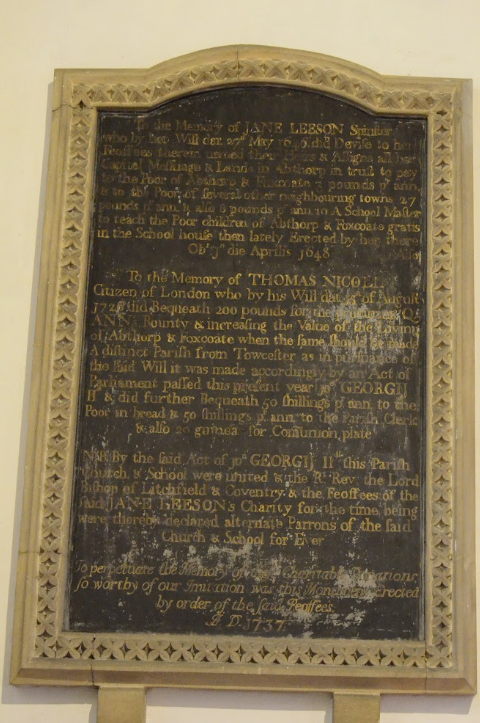 To the Memory of JANE LEESON Spinster
who by her Will dat. 27th May 1646 did Devise to her
Feoffees therein named their Heirs & Assigns all her
Capital Messuage & Lands in Abthorp in trust to pay
to the Poor of Abthorp & Foxcoate 3 pounds pr ann.
& to the Poor of several other neighbouring towns 27
pounds pr ann. & also 8 pounds pr ann. to A School Master
to teach the Poor children of Abthorp & Foxcoate gratis
in the School house then lately Erected by her there
Ob: die Aprilis 1648
To the Memory of THOMAS NICOLL
Citizen of London who by his Will dat. of August
did Bequeath 200 pounds for the Qn.
ANN's Bounty & increasing the Value of the Living
of Abthorp & Foxcoate when the same should be made
A distinct Parish from Towcester as in pursuance of
the said Will it was made accordingly by an Act of
Parliament passed this present year 10° GEORGIJ
II & did further Bequeath 50 shillings pr ann. to the
Poor in bread & 50 shillings pr ann. to the Parish Clerk
& also 20 guinea for Comunion plate
NB By the said Act of 10° GEORGIJ II this Parish
Church & School were united & the Rt. Rev. the Lord
Bishop of Litchfield & Coventry & the Feoffees of the
said JANE LEESON's Charity for the time being
were thereby declared alternate Patrons of the said
Church & School for Ever
To perpetuate the Memory of these Charitable Donations,
so worthy of our Imitation was this Monument Erected
by order of the said Feoffees.
A. D. 1737